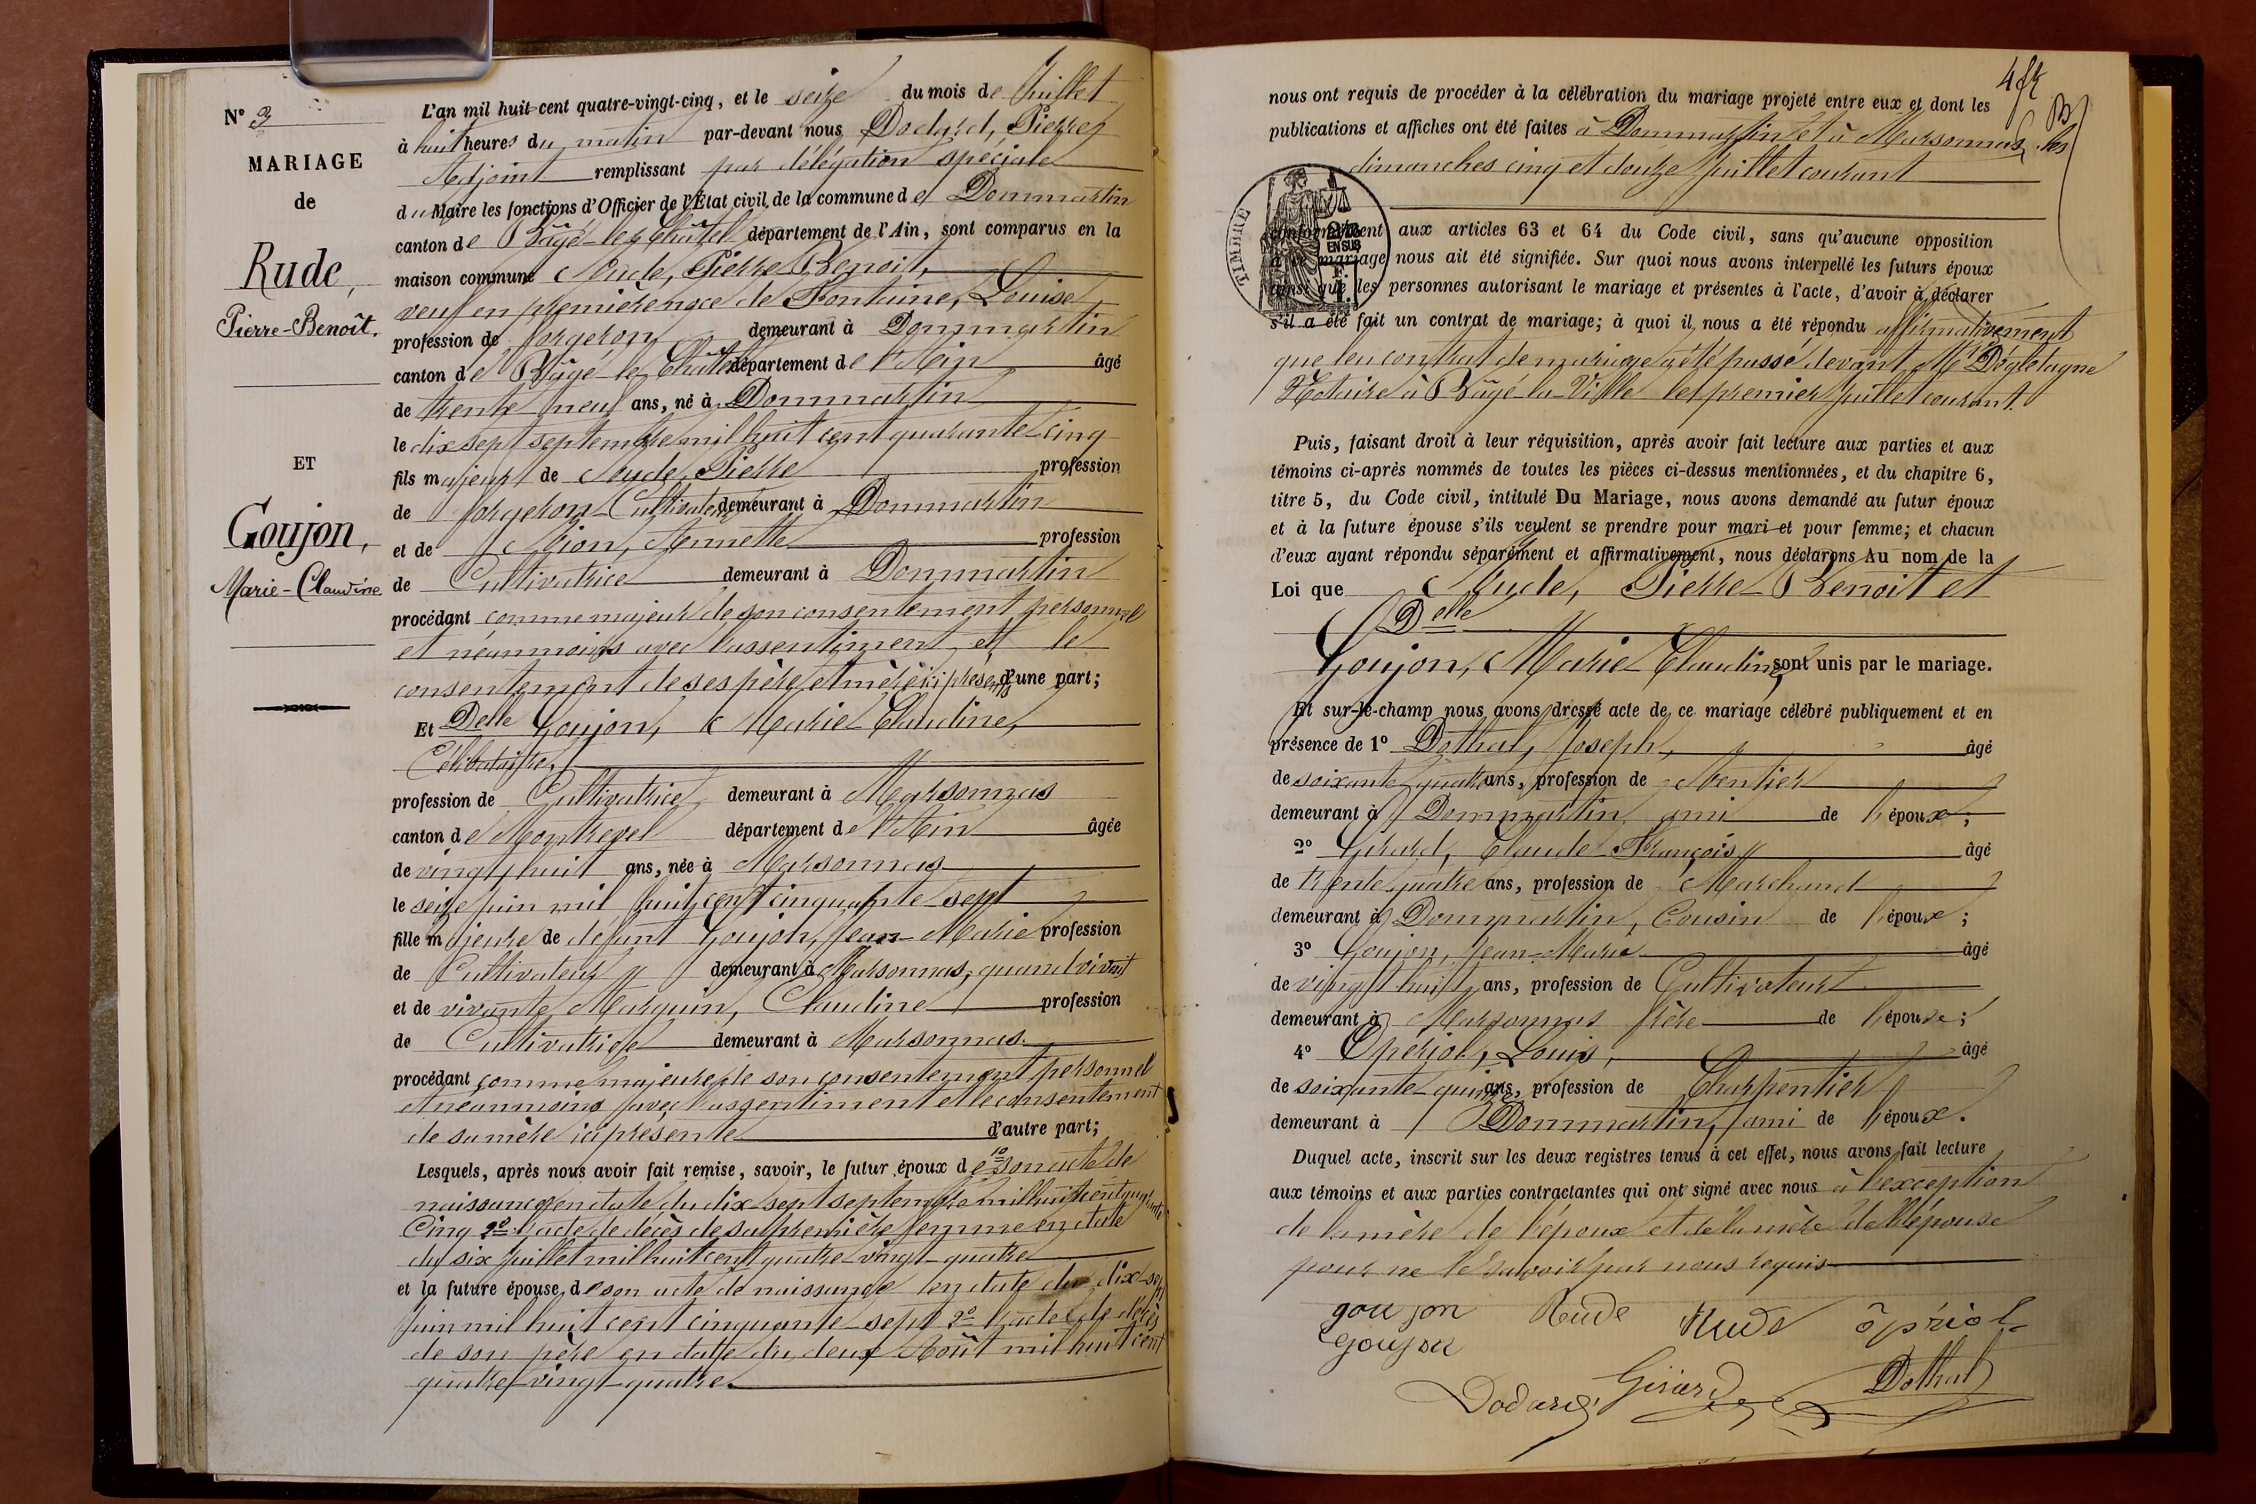 N° 3
MARIAGE
de
Rude,
Pierre-Benoît.
ET
Goujon,
Marie-Claudine
L'an mil huit cent quatre-vingt-cinq, et le seize du mois de Juillet
à huit heures du matin par-devant nous Dodard, Pierre
Adjoint remplissant par délégation spéciale
du Maire les fonctions d'Officier de l'État civil de la commune de Dommartin
canton de Bâgé-le-Châtel département de l'Ain, sont comparus en la
maison commune Rude, Pierre Benoit,
veuf en première noce de Fontaine, Louise,
profession de forgeron demeurant à Dommartin
canton de Bâgé-le-Châtel département de l'Ain âgé
de trente neuf ans, né à Dommartin
le dix sept septembre mil huit cent quarante-cinq
fils majeur de Rude, Pierre profession
de forgeron-Cultivateur demeurant à Dommartin
et de Nion, Annette profession
de Cultivatrice demeurant à Dommartin
procédant comme majeur de son consentement personnel
et néanmoins avec l'assentiment et le
consentement de ses père et mère ici présents d'une part;
Et Delle Goujon, Marie Claudine,
Célibataire,
profession de Cultivatrice demeurant à Marsonnas
canton de Montrevel département de l'Ain âgée
de vingt huit ans, née à Marsonnas
le seize juin mil huit cent cinquante-sept
fille majeure de defunt Goujon, Jean-Marie profession
de Cultivateur demeurant à Marsonnas, quand vivait
et de vivante Marguin, Claudine profession
de Cultivatrice demeurant à Marsonnas.
procédant comme majeure de son consentement personnel
et néanmoins avec l'assentiment et le consentement
de sa mère ici présente d'autre part;
Lesquels, après nous avoir fait remise, savoir, le futur époux de 1° son acte de
naissance en date du dix-sept septembre mil huit cent quarante
Cinq 2° l'acte de décès de sa première femme en date
du six juillet mil huit cent quatre-vingt-quatre
et la future épouse, de son acte de naissance en date du dix-sept
juin mil huit cent cinquante-sept 2° l'acte de décès
de son père en date du deux Août mil huit cent
quatre-vingt-quatre.
4 f
nous ont requis de procéder à la célébration du mariage projeté entre eux et dont les
publications et affiches ont été faites à Dommartin et à Marsonnas, les
dimanches cinq et douze juillet courant
TIMBRE
EN SUS
conformément aux articles 63 et 64 du Code civil, sans qu'aucune opposition
à ce mariage nous ait été signifiée. Sur quoi nous avons interpellé les futurs époux
ainsi que les personnes autorisant le mariage et présentes à l'acte, d'avoir à déclarer
s'il a été fait un contrat de mariage; à quoi il nous a été répondu affirmativement
que leu contrat de mariage a été passé devant Me Dégletagne
Notaire à Bâgé-la-Ville le premier juillet courant.
Puis, faisant droit à leur réquisition, après avoir fait lecture aux parties et aux
témoins ci-après nommés de toutes les pièces ci-dessus mentionnées, et du chapitre 6,
titre 5, du Code civil, intitulé Du Mariage, nous avons demandé au futur époux
et à la future épouse s'ils veulent se prendre pour mari et pour femme; et chacun
d'eux ayant répondu séparément et affirmativement, nous déclarons Au nom de la
Loi que Rude, Pierre Benoit et
Delle
Goujon, Marie Claudine, sont unis par le mariage.
Et sur-le-champ nous avons dressé acte de ce mariage célébré publiquement et en
présence de 1° Dothal, Joseph, âgé
de soixante quatre ans, profession de Rentier
demeurant à Dommartin, ami de l'époux;
2° Girard, Claude-François âgé
de trente quatre ans, profession de Marchand
demeurant à Dommartin, Cousin de l'époux;
3° Goujon, Jean-Marie âgé
de vingt huit ans, profession de Cultivateur
demeurant à Marsonnas frère de l'épouse;
4° Opériol, Louis, âgé
de soixante-quinze ans, profession de Charpentier
demeurant à Dommartin, ami de l'époux.
Duquel acte, inscrit sur les deux registres tenus à cet effet, nous avons fait lecture
aux témoins et aux parties contractantes qui ont signé avec nous à l'exception
de la mère de l'époux et de la mère de l'épouse
pour ne le savoir par nous requis
goujon Rude Rude ôpériol
Goujon
Dodard Girard Dothal